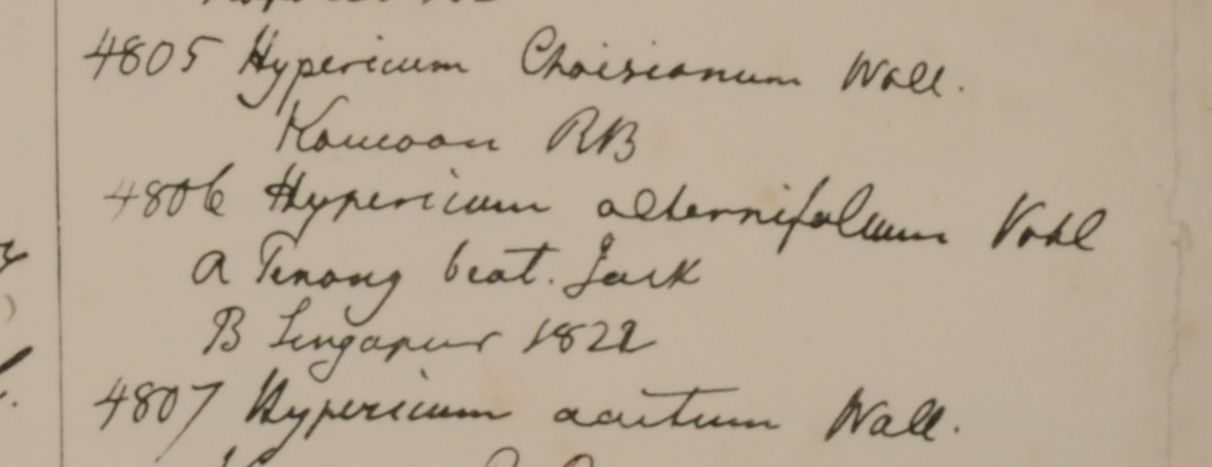 4805 Hypericum Choisianum Wall.
Kamoon RB
4806 Hypericum alternifolium Vahl
a Penang beat. Jack
B Singapur 1822
4807 Hypericum Wall.